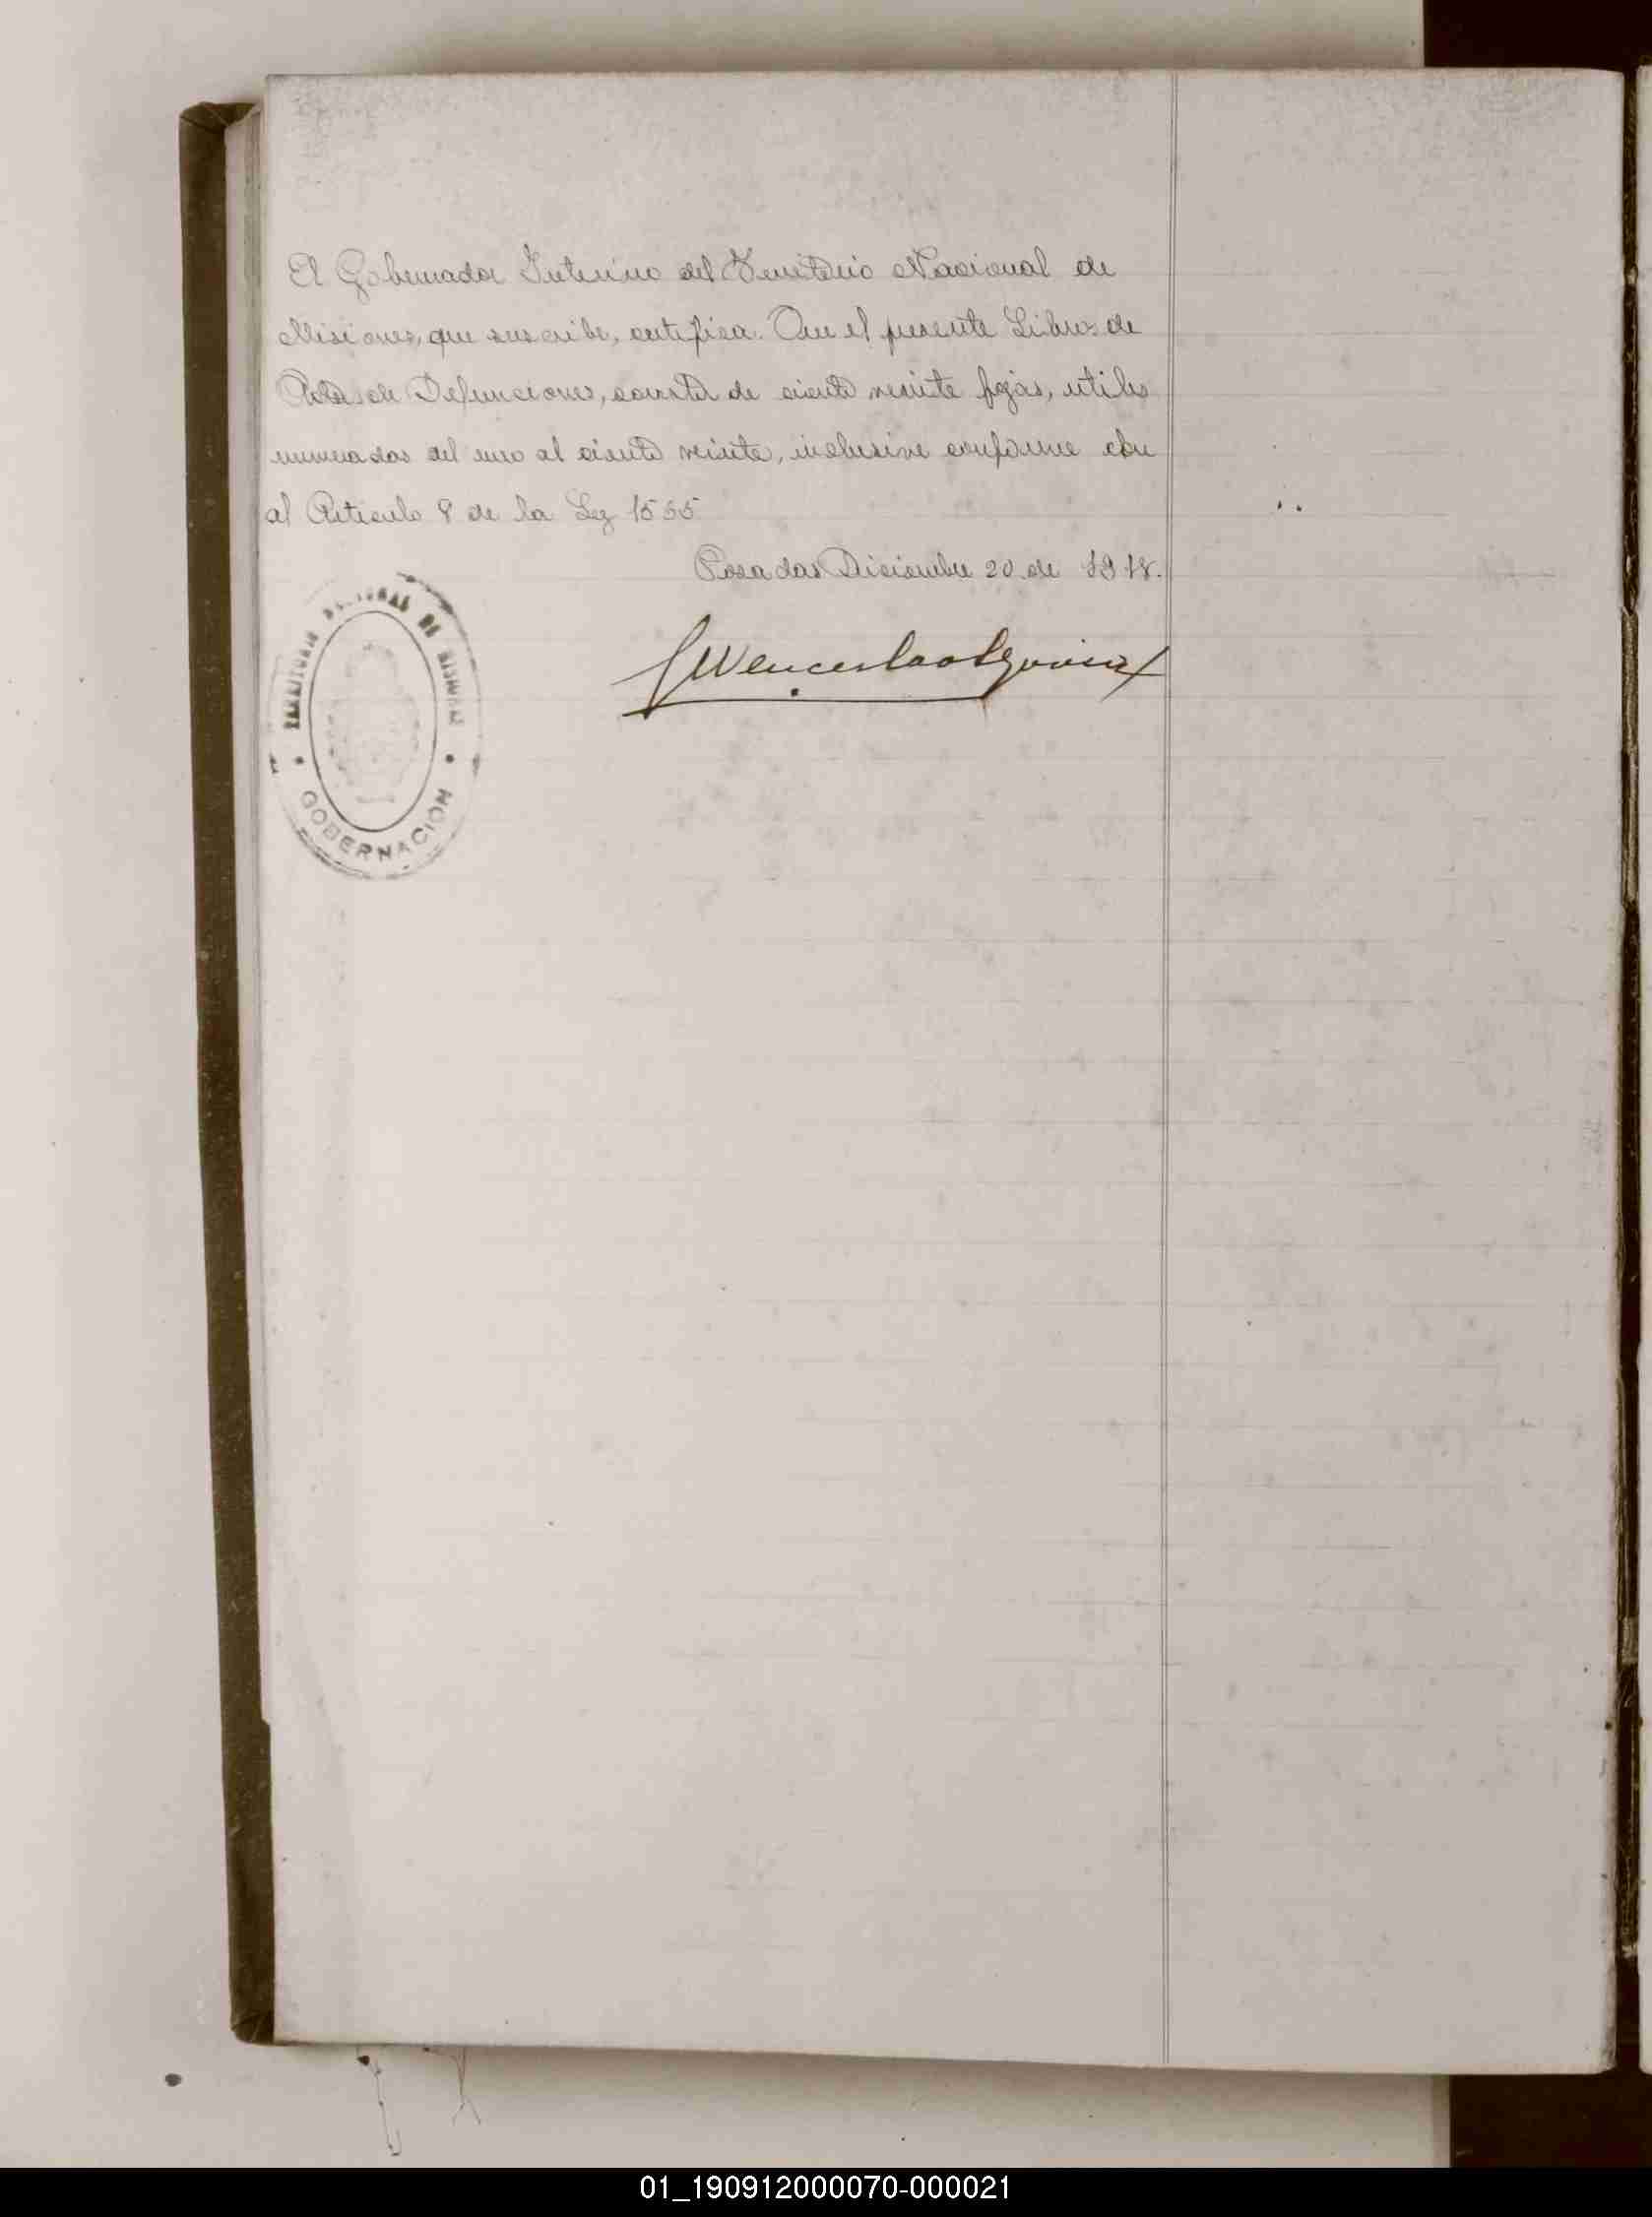 El Gobernador Interino del Territorio Nacional de
Misiones, que suscribe, certifica. Que el presente Libro de
Actas de Defunciones, consta de ciento veinte fojas, utiles
numeradas del uno al ciento veinte, inclusive conforme con
al Articulo 8 de la Ley 1565
Posadas Diciembre 20 de 1918.
Wenceslao
TERRITORIO NACIONAL DE MISIONES
GOBERNACION
01_190912000070-000021